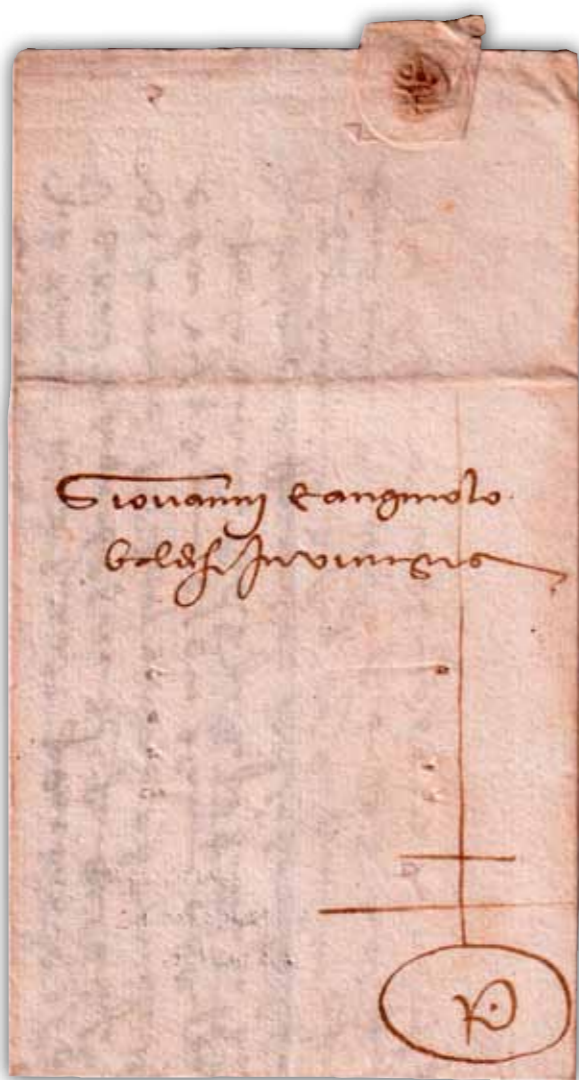 Giouannj e angniolo
baldesi Jn vinegia